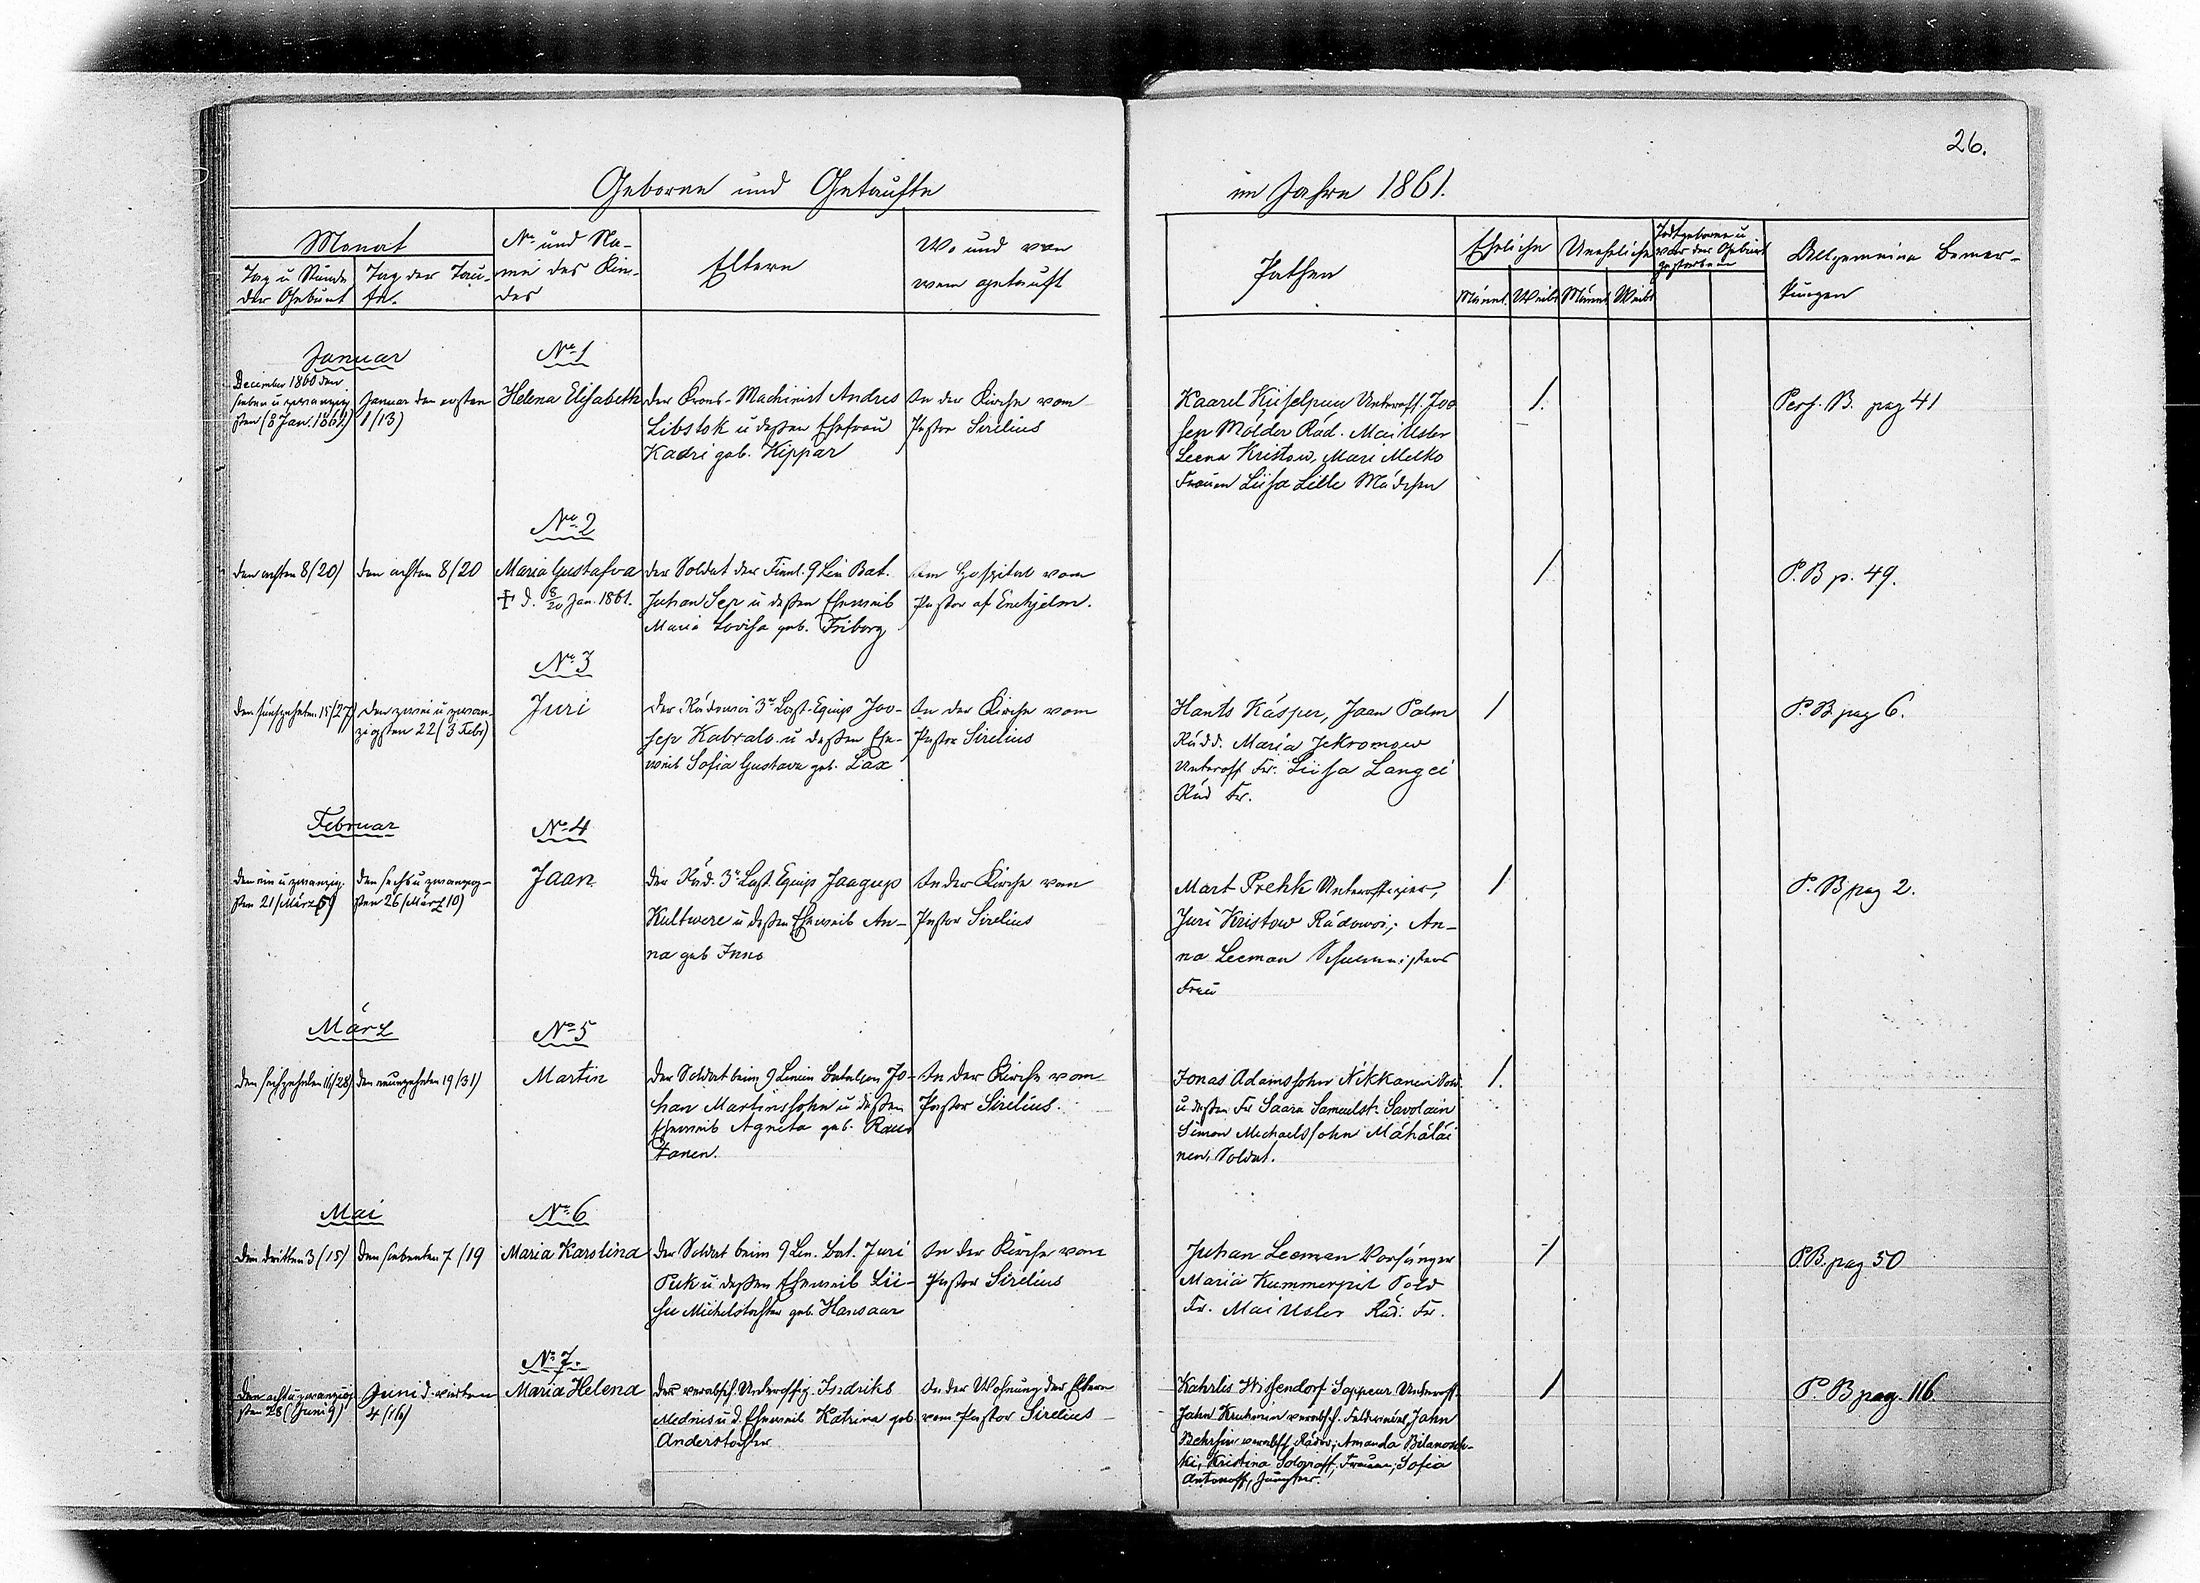 26.
Geborne und Getaufte im Jahre 1861.
Monat
Tag u Stunde der Geburt
Tag der Taufe.
No und Name des Kindes
Eltern
Wo und von wem getauft
Pathen
Eheliche
Männl. Weibl
Uneheliche
Männl Weibl
Todtgeborne u vor der Geburt gestorbene
Allgemeine Bemerkungen
Januar
No 1
December 1860 den
sieben u zwanzig
sten (8 Jan. 1861)
Januar den ersten
1/13)
Helena Elisabeth
Der Krons-Machinist Andres
Libstok u deßen Ehefrau
Kadri geb. Kippar
In der Kirche vom
Pastor Sirelius
Kaarel Küselpuu Unteroff. Joo
sep Mölder Räd. Mai Usler
Leena Kristow, Mari Melko
Frauen Liisa Lille Mädchen
1.
Pers. B. pag 41
No 2
den achten 8/20)
den achten 8/20
Maria Gustafva
† d. 8/20 Jan. 1861.
Der Soldat der Finnl. 9 Lin Bat.
Juhan Sep u deßen Eheweib
Maria Lovisa geb. Friborg
Im Hospital vom
Pastor af Enehjelm.
1
P. B p. 49.
No 3
den fünfzehnten 15/27)
den zwei u zwan
zigsten 22 (3 Febr)
Juri
Der Rädowoi 3r Last-Equip Joo-
sep Kabralo u deßen Ehe-
weib Sofia Gustava geb. Lax
In der Kirche vom
Pastor Sirelius
Hants Käsper, Jaan Palm
Rädd. Maria Jekromow
Unteroff Fr. Liisa Langei
Räd Fr.
1
P. B pag 6.
Februar
No 4
den ein u zwanzig-
sten 21/März 5)
den sechs u zwanzig-
sten 26/März 10)
Jaan
Der Räd. 3r Last Equip Jaagup
Kultwere u deßen Eheweib An-
na geb Inno
In der Kirche von
Pastor Sirelius
Mart Prehk Unteroffizier,
Juri Kristow Rädowoi; An-
na Leeman Schulmeisters
Frau
1
P. B pag 2.
März
No 5
den sechzehnten 16/28)
den neunzehnten 19/31)
Martin
Der Soldat beim 9 Linien Batalion Jo-
han Martinssohn u deßen
Eheweib Agneta geb. Rau
tanen.
In der Kirche vom
Pastor Sirelius.
Jonas Adamssohn Nikkanen Sold.
u deßen Fr Saara Samuelst. Savolain
Simon Michaelssohn Mähäläi
nen, Soldat.
1.
Mai
No 6
den dritten 3/15)
den siebenten 7/19
Maria Karolina
Der Soldat beim 9 Lin. Bat. Juri
Puk u deßen Eheweib Lii-
su Michelstochter geb. Hansaar
In der Kirche von
Pastor Sirelius
Juhan Leeman Vorsänger
Maria Kummerpil Sold
Fr. Mai Usler Räd. Fr.
1
P.B. pag 50
No 7.
Den acht u zwanzig
sten 28 (Juni 9)
Juni d. vierten
4/16)
Maria Helena
Der verabsch. Unteroffiz. Indriks
Mednis u d. Eheweib Katrina geb
Anderstochter
In der Wohnung der Eltern
vom Pastor Sirelius
Kahrlis Wissendorf Sappeur Unteroff.
Jahn Kruhmin verabsch. Feldwäbel, Jahn
Behrsin verabsch Rädow; Amanda Bilanosch-
ki, Kristina Sologoff, Frauen, Sofia
Antonoff, Jungfer.
1
P. B pag. 116.